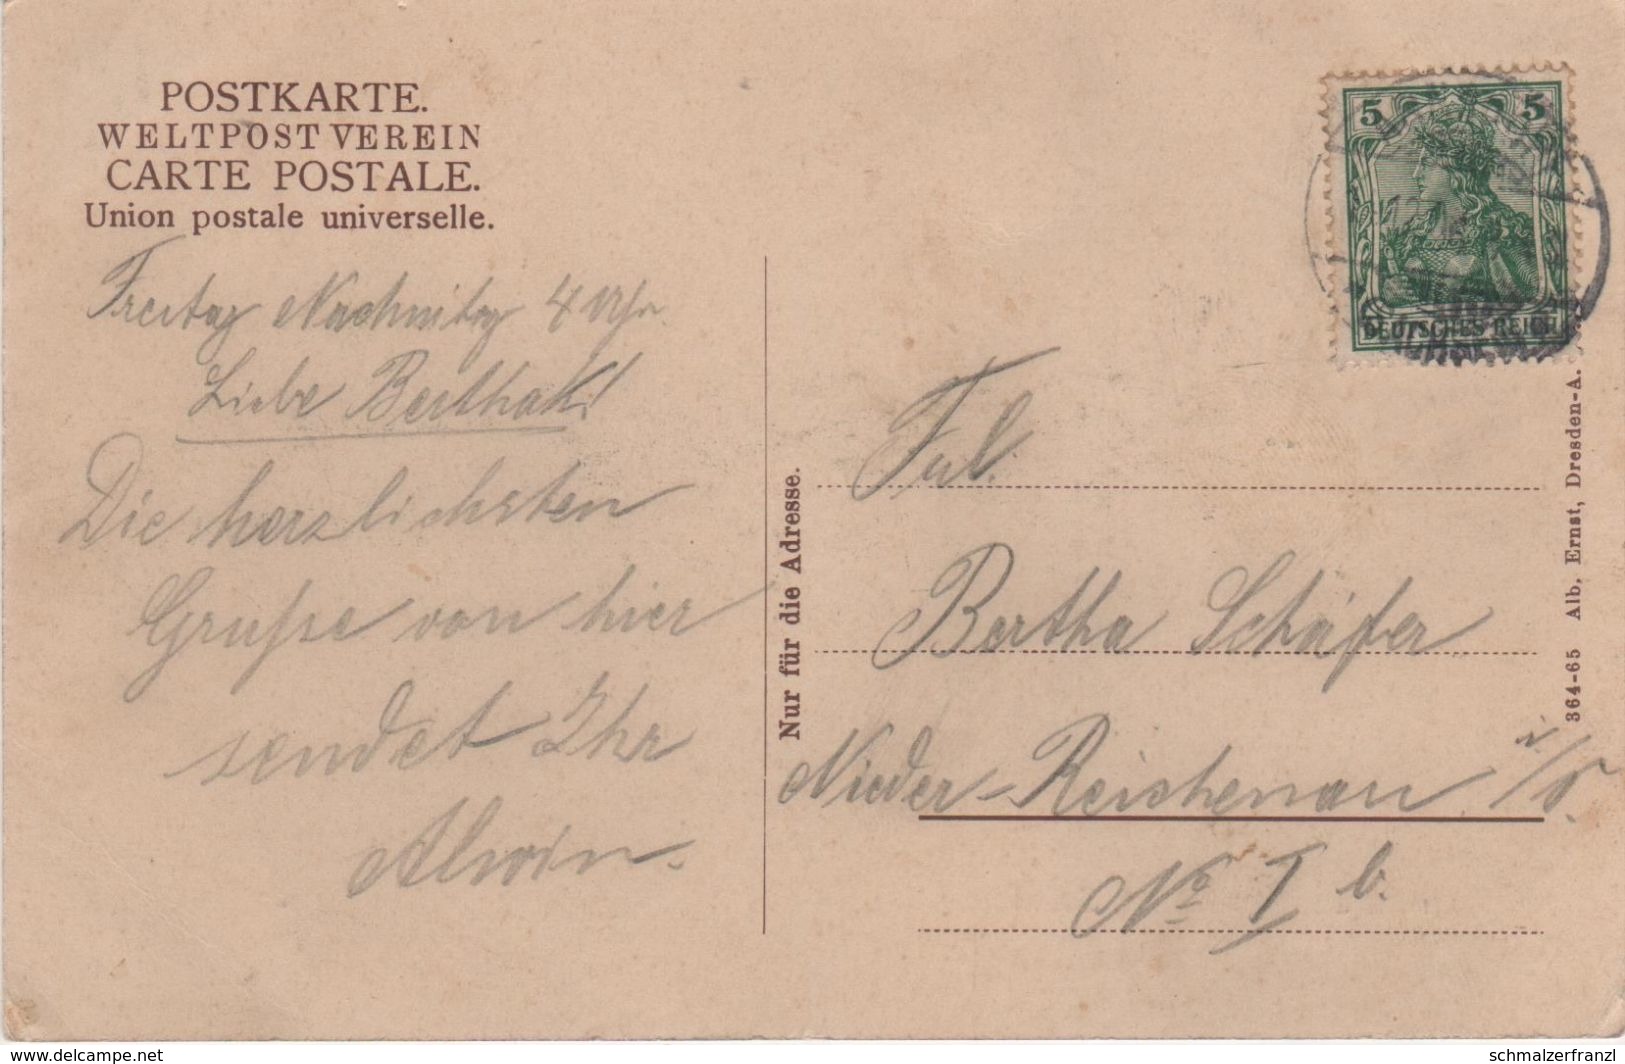 POSTKARTE.
WELTPOSTVEREIN
CARTE POSTALE.
Union postale universelle.
Freitag Nachmitag 4 Uhr
Liebe Bertha!
Die herzlichsten
Gruße von hier
sendet Ihr
Alwin.
Nur für die Adresse.
5 5
DEUTSCHES REICH
Frl.
Bertha Schäfer
Nieder-Reichenau i/S.
No I b.
364-65 Alb. Ernst, Dresden-A.
www.delcampe.net
schmalzerfranzl